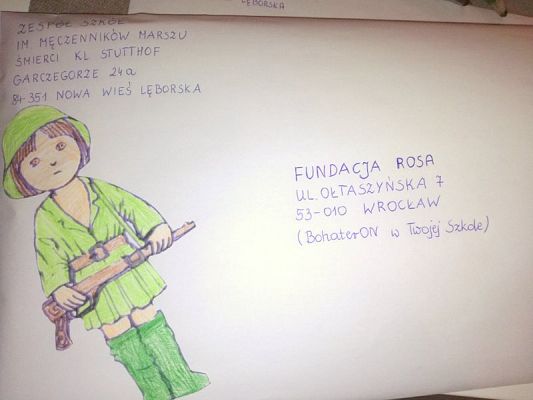 LĘBORSKA
ZESPÓŁ SZKÓŁ
IM. MĘCZENNIKÓW MARSZU
ŚMIERCI KL STUTTHOF
GARCZEGORZE 24a
84-351 NOWA WIEŚ LĘBORSKA
FUNDACJA ROSA
UL. OŁTASZYŃSKA 7
53-010 WROCŁAW
(BohaterON w Twojej Szkole)